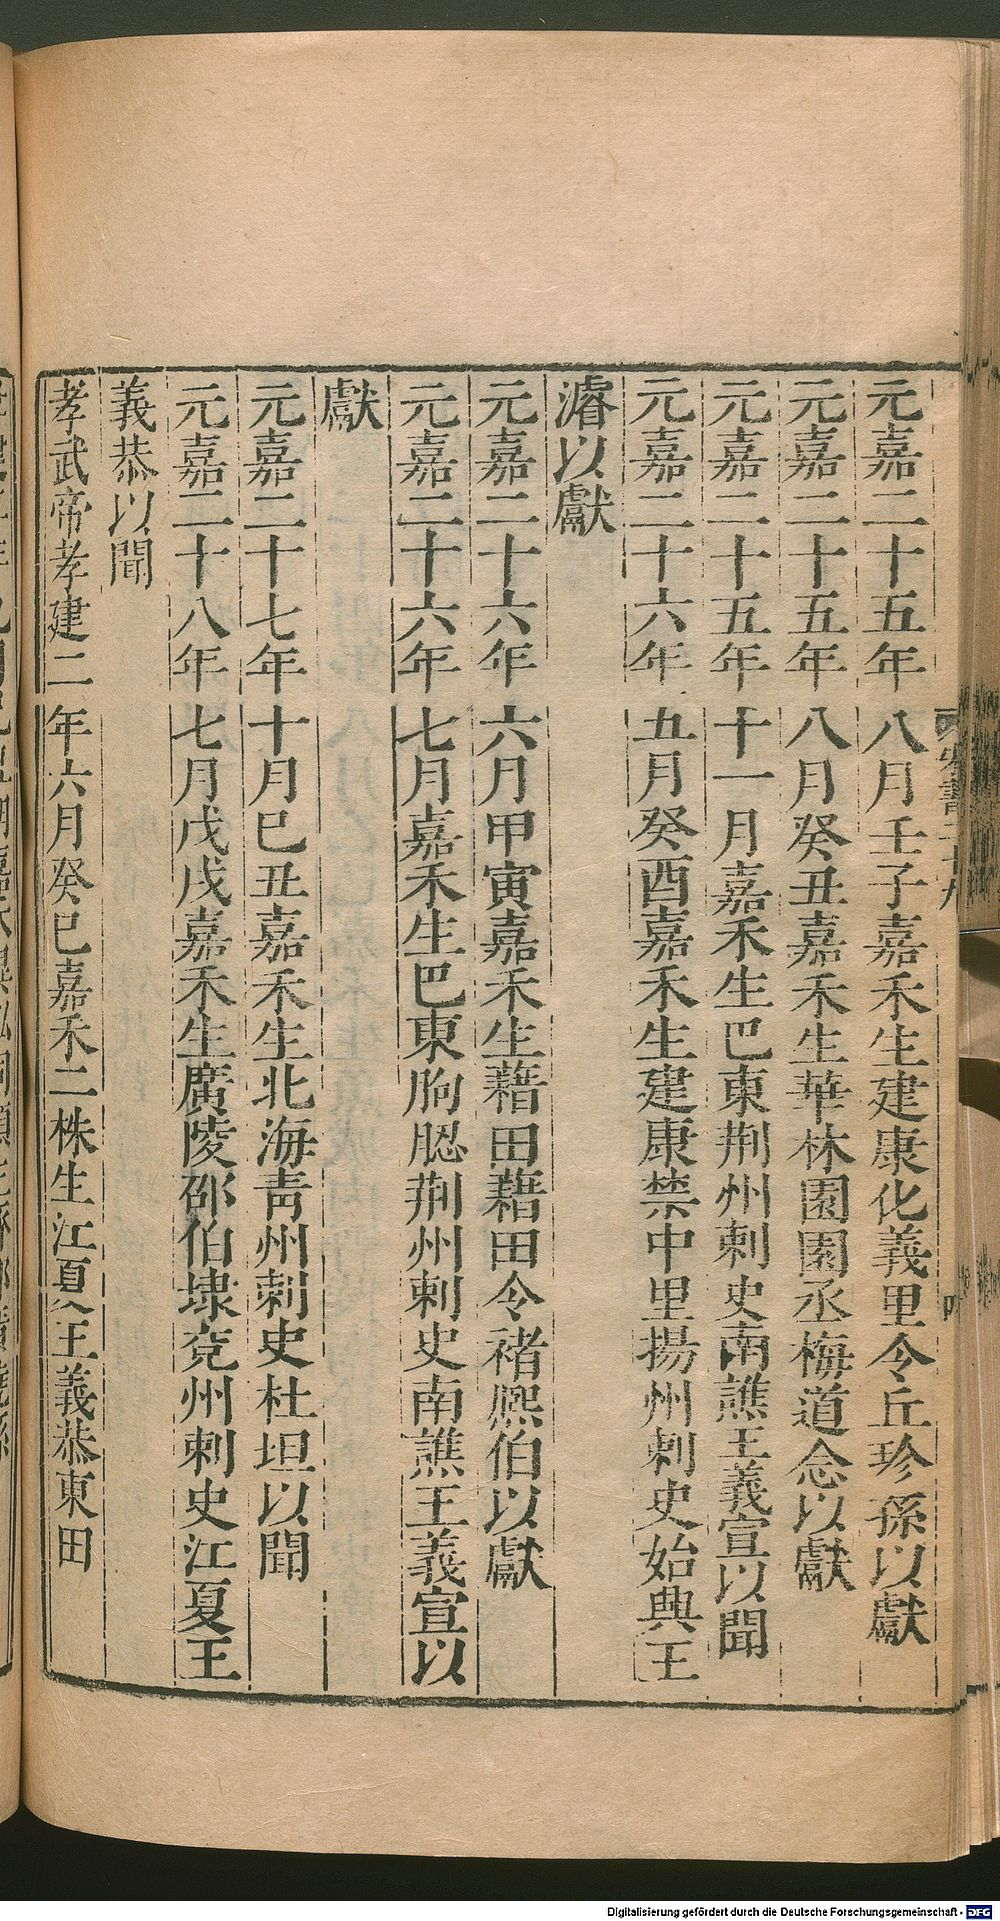 元嘉二十五年八月壬子嘉禾生建康化義里令丘珍孫以獻
元嘉二十五年八月癸丑嘉禾生華林園園丞梅道念以獻
元嘉二十五年十一月嘉禾生巴東荆州刺史南譙王義宣以聞
元嘉二十六年五月癸酉嘉禾生建康禁中里揚州刺史始興王
濬以獻
元嘉二十六年六月甲寅嘉禾生藉田藉田令褚熈伯以獻
元嘉二十六年七月嘉禾生巴東朐䏰荆州刺史南譙王義宣以
獻
元嘉二十七年十月巳丑嘉禾生北海靑州刺史杜坦以聞
元嘉二十八年七月戊戌嘉禾生廣陵邵伯埭兖州刺史江夏王
義恭以聞
孝武帝孝建二年六月癸巳嘉禾二株生江夏王義恭東田
Digitalisierung gefördert durch die Deutsche Forschungsgemeinschaft - DFG